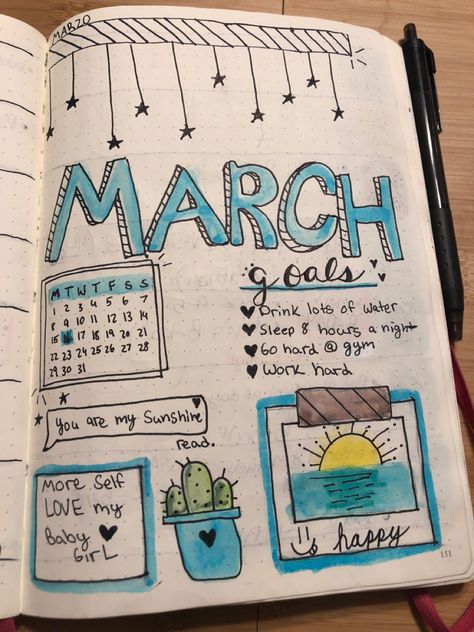 MARZO
MARCH
goals
Drink lots of water
Sleep 8 hours a night
GO hard @ gym
WORK hard
M T W T F S S
1 2 3 4 5 6 7
8 9 10 11 12 13 14
15 16 17 18 19 20 21
22 23 24 25 26 27 28
29 30 31
You are my Sunshine
read.
MORE Self
LOVE my
Baby
GIRL
happy
151